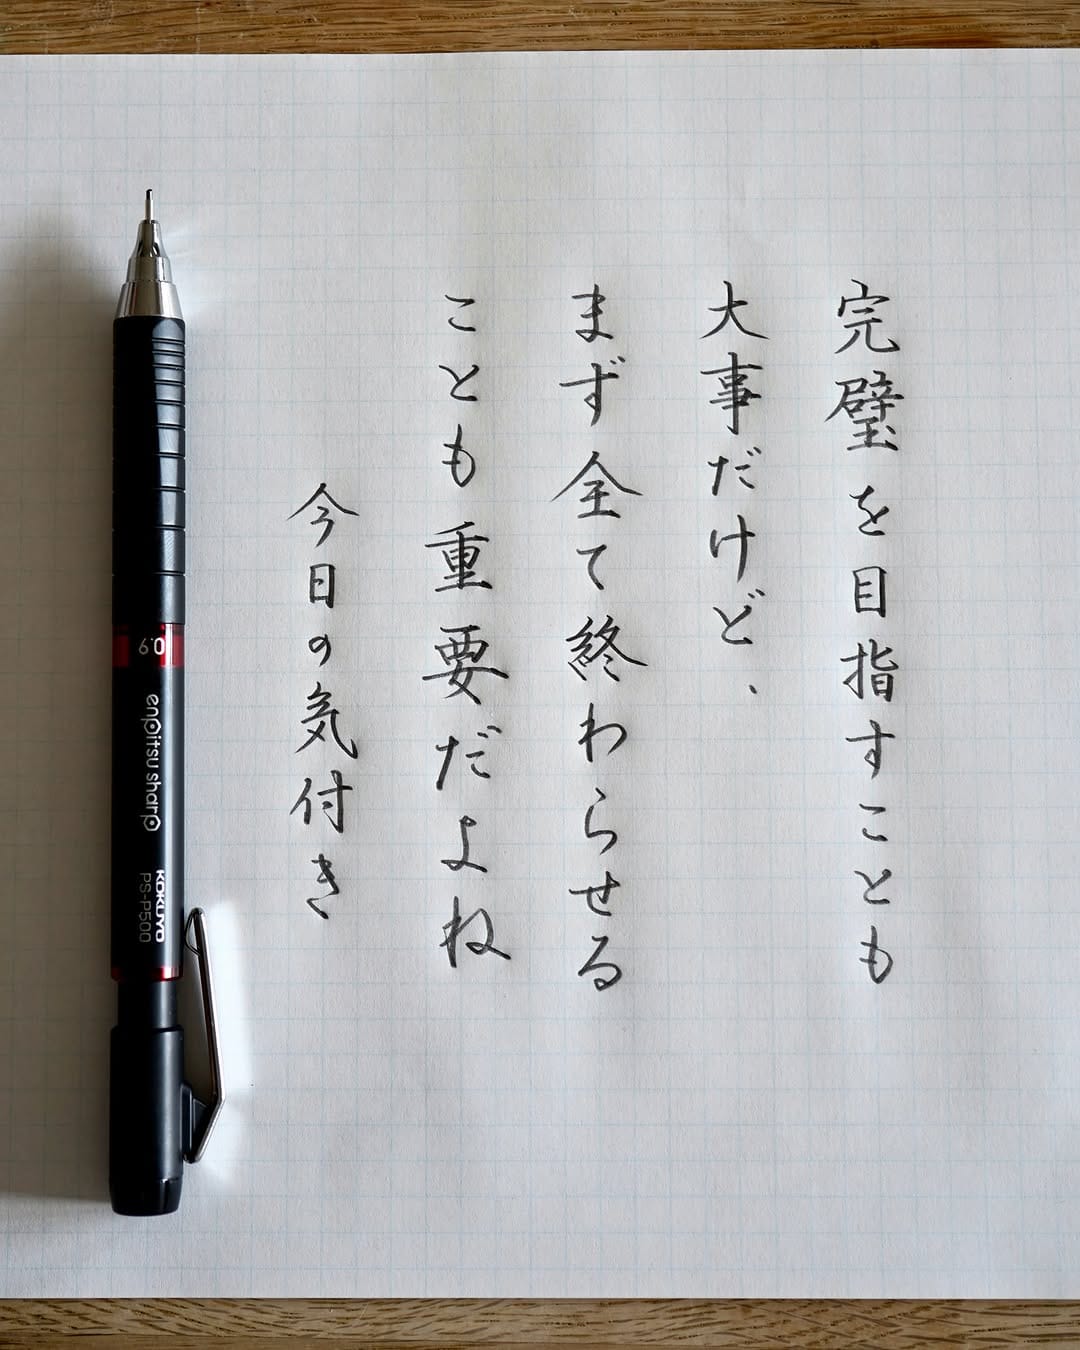 完璧を目指すことも
大事だけど、
まず全て終わらせる
ことも重要だよね
今日の気付き
0.9
enpitsu sharp
KOKUYO
PS-P500